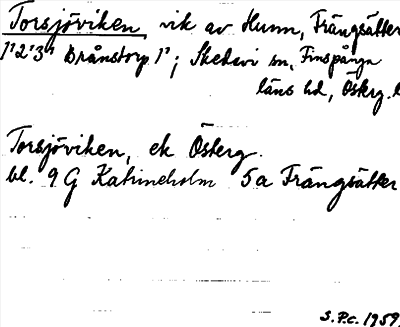 Torsjöviken, vik av Hunn, Frängsätter
1'2'3' Brånstorp 1'; Skedevi sn, Finspånga
läns hd, Österg. l
Torsjöviken, ek Österg.
bl. 9 G Katrineholm 5a Frängsätter
S.P.c. 1959